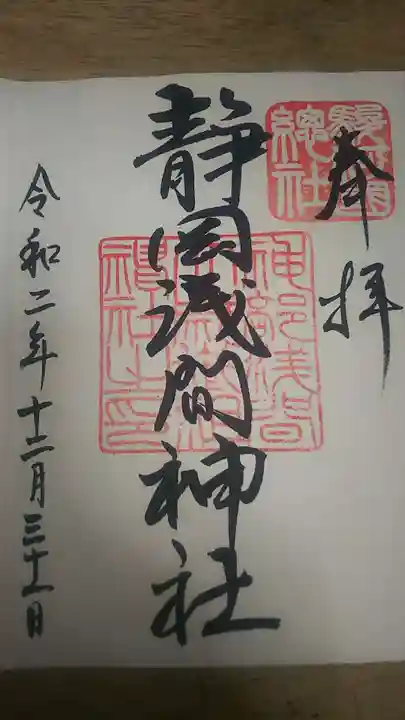 奉拝
駿府
總社
静岡浅間神社
神部浅間
令和二年十二月三十一日